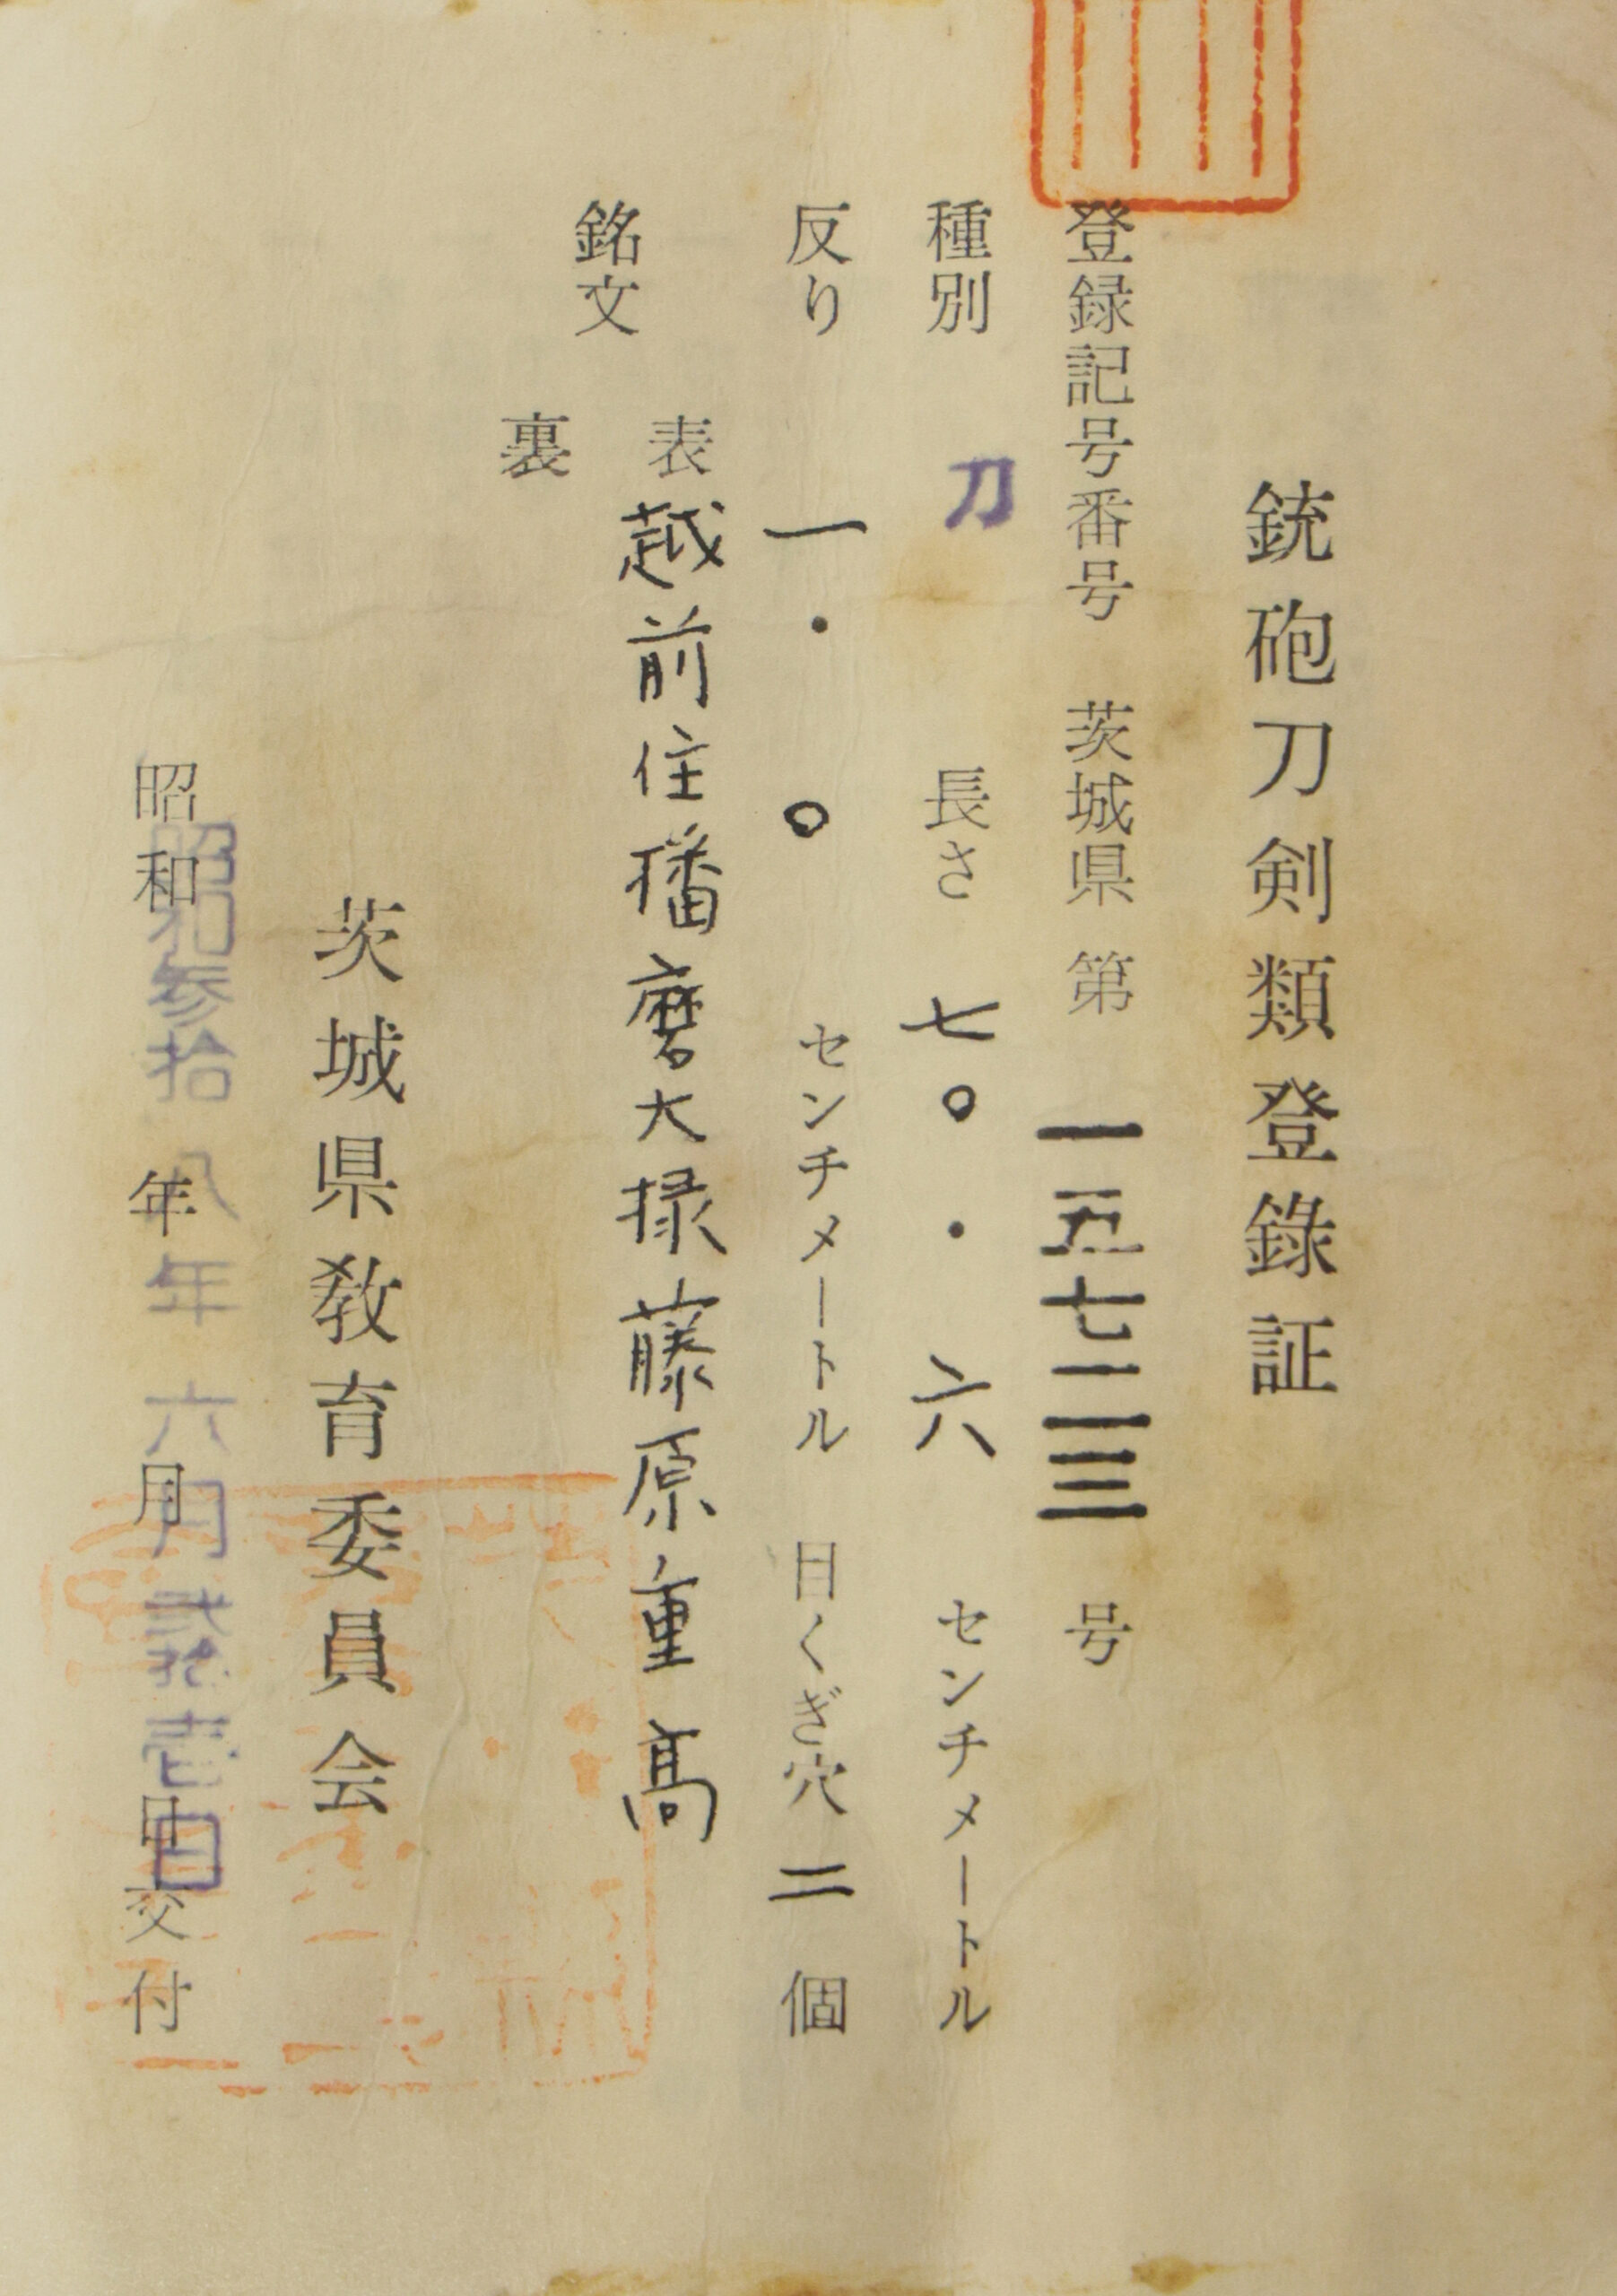 銃砲刀剣類登録証
登録記号番号 茨城県 第 一五七二三 号
種別 刀 長さ 七〇・六 センチメートル
反り 一・〇 センチメートル 目くぎ穴 二 個
銘文
表 越前住播磨大掾藤原重高
裏
茨城県教育委員会
昭和参拾八年六月弐拾壱日
昭和 年 月 日交付